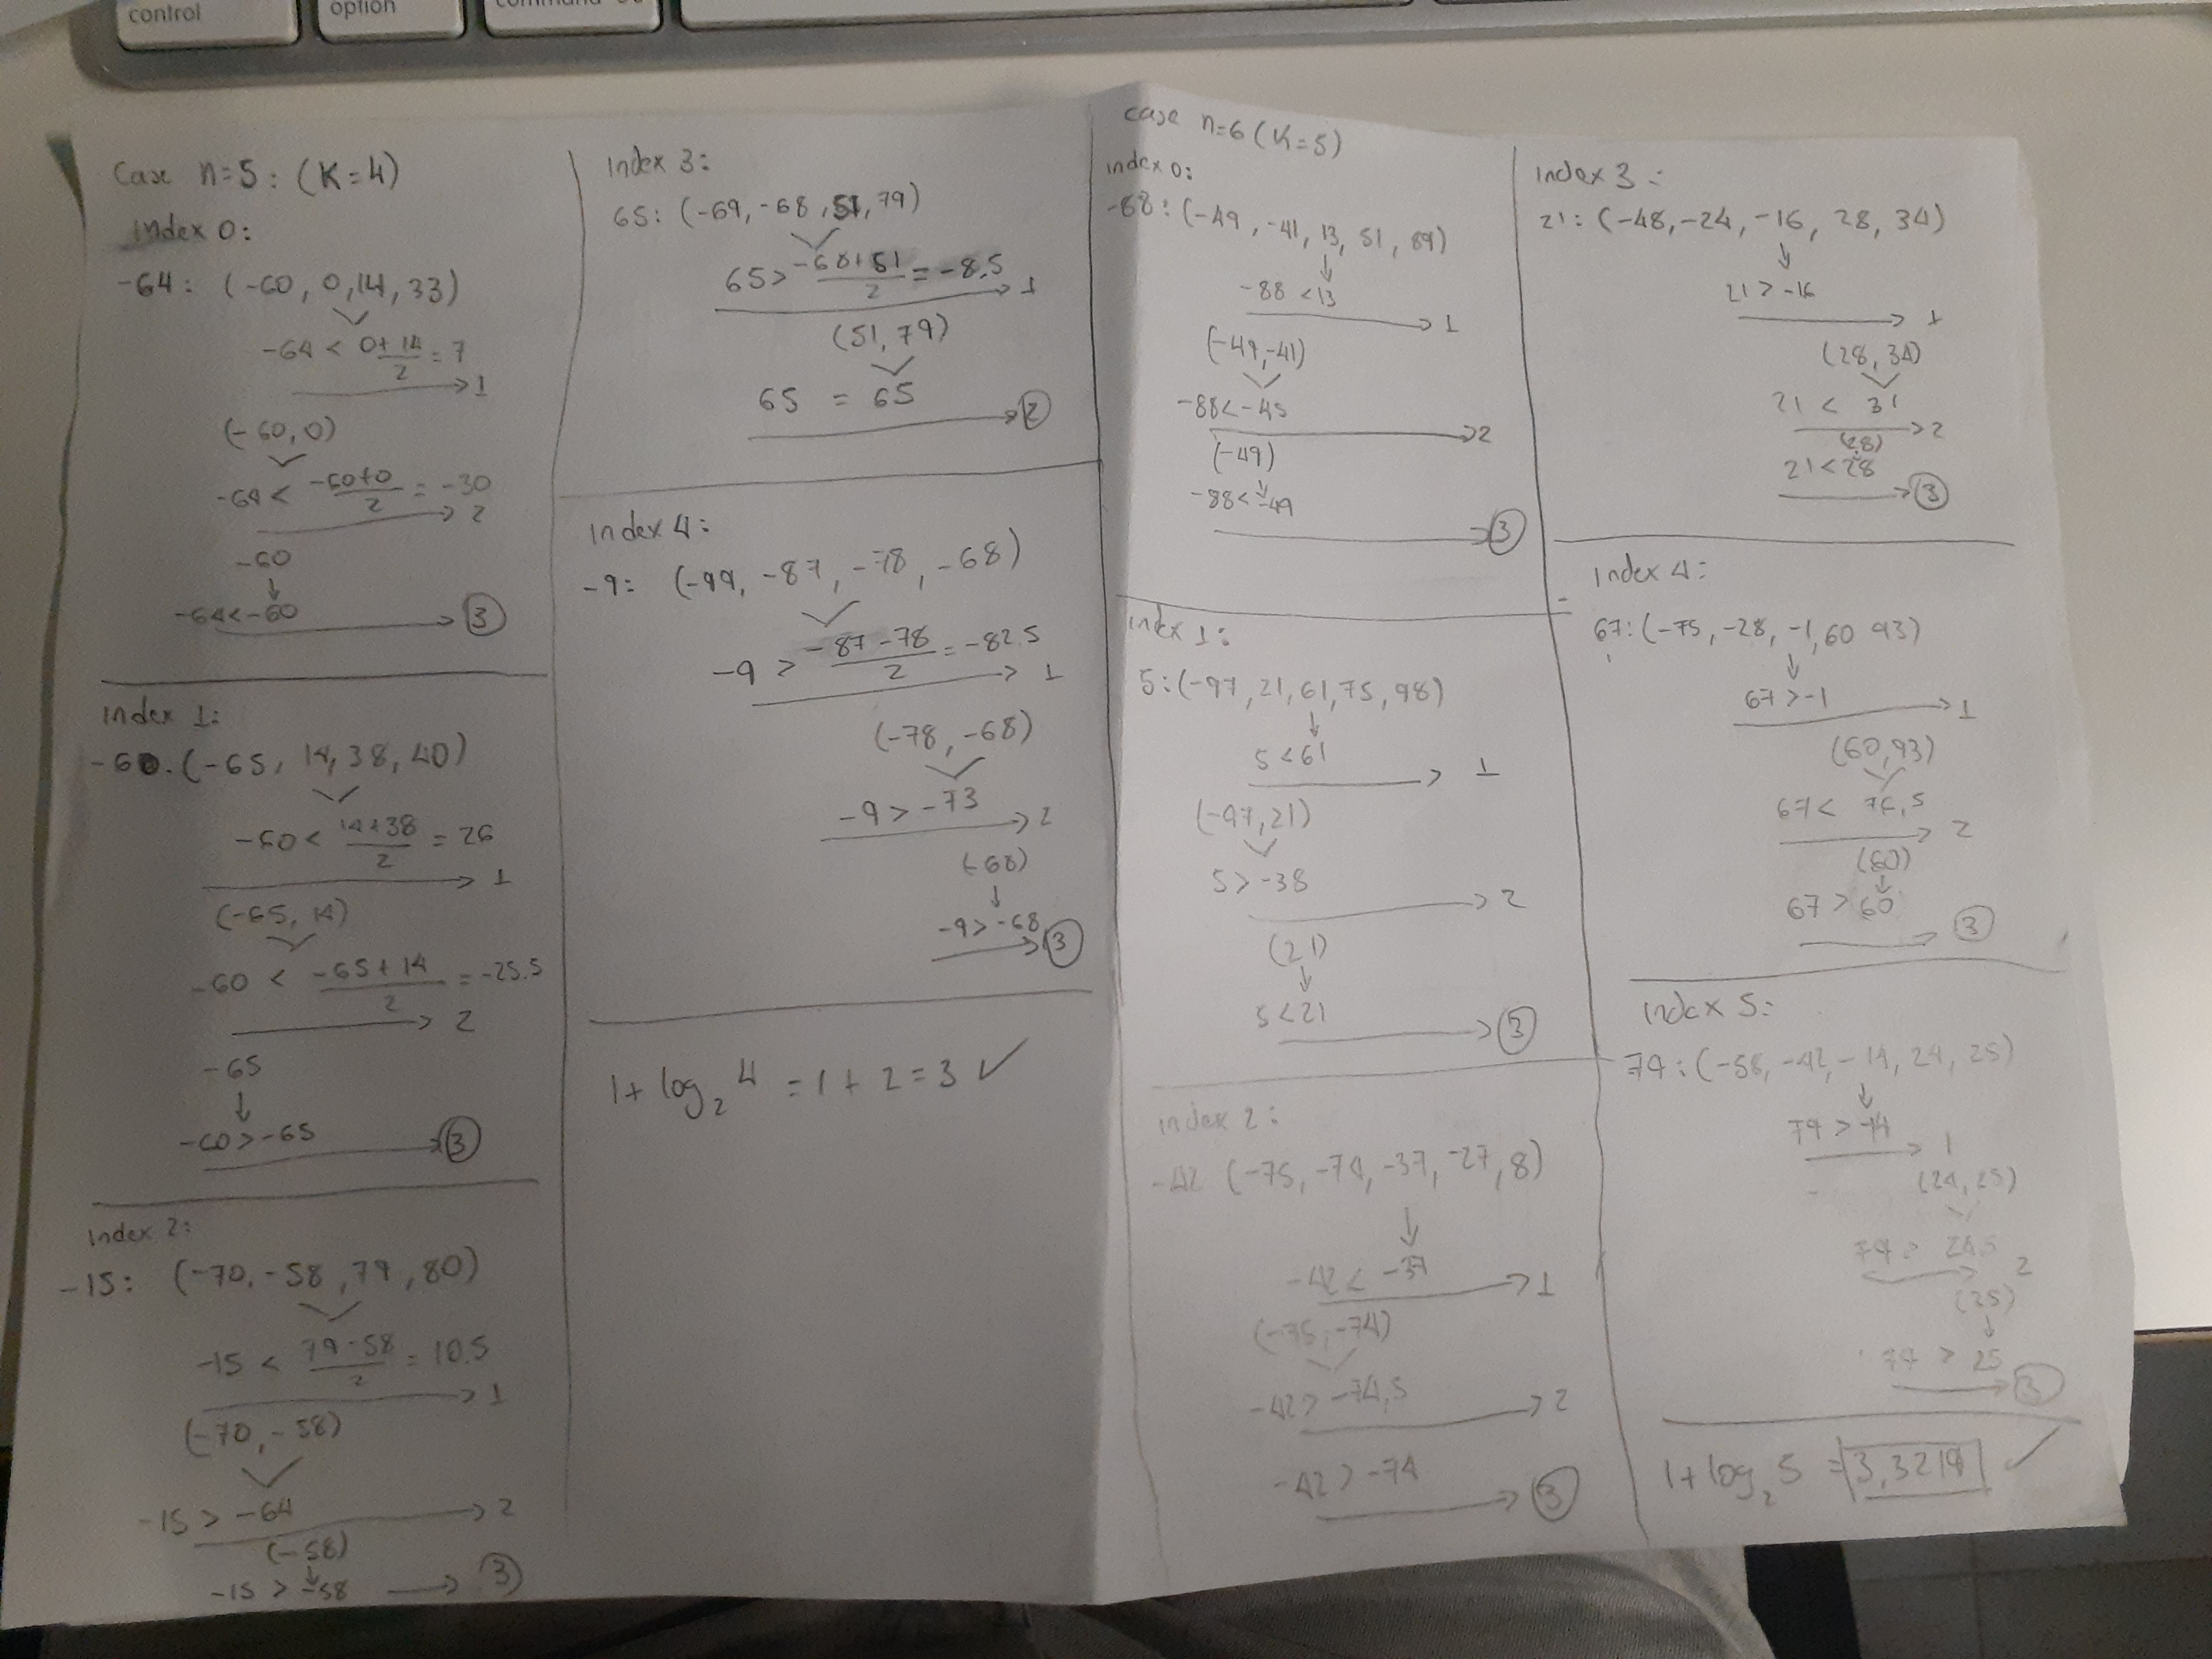 control
option
command
Case n=5: (K=4)
Index 0:
-64: (-60, 0, 14, 33)
-64 < 0+14/2 = 7
→ 1
(-60, 0)
-64 < -60+0/2 = -30
→ 2
-60
↓
-64<-60 → 3
Index 1:
-60. (-65, 14, 38, 40)
-60 < 14+38/2 = 26
→ 1
(-65, 14)
-60 < -65+14/2 = -25.5
→ 2
-65
↓
-60>-65 → 3
Index 2:
-15: (-70, -58, 79, 80)
-15 < 79-58/2 = 10.5
→ 1
(-70, -58)
-15 > -64 → 2
(-58)
↓
-15 > -58 → 3
Index 3:
65: (-69, -68, 51, 79)
65 > -68+51/2 = -8.5
→ 1
(51, 79)
65 = 65
→ 2
Index 4:
-9: (-99, -87, -78, -68)
-9 > -87-78/2 = -82.5
→ 1
(-78, -68)
-9 > -73
→ 2
(-68)
↓
-9>-68
→ 3
1+ log₂ 4 = 1 + 2 = 3 ✓
case n=6 (K=5)
index 0:
-88: (-49, -41, 13, 51, 89)
↓
-88 <13
→ 1
(-49,-41)
-88<-45
→ 2
(-49)
↓
-88<-49
→ 3
Index 1:
5: (-97, 21, 61, 75, 98)
↓
5 <61
→ 1
(-97, 21)
5> -38
→ 2
(21)
↓
5<21
→ 3
index 2:
-42 (-75, -74, -37, -27, 8)
↓
-42 < -37
→ 1
(-75, -74)
-42> -74,5
→ 2
-42 > -74
→ 3
Index 3:
21: (-48, -24, -16, 28, 34)
↓
21 > -16
→ 1
(28, 34)
21 < 31
→ 2
(28)
21<28
→ 3
Index 4:
67: (-75, -28, -1, 60 93)
↓
67 >-1
→ 1
(60,93)
67< 76,5
→ 2
(60)
↓
67 >60
→ 3
Index 5:
79: (-58, -42, -14, 24, 25)
↓
79 > -14
→ 1
(24, 25)
79 > 24,5
→ 2
(25)
↓
79 > 25
→ 3
1+log₂ 5 = 3,3219 ✓